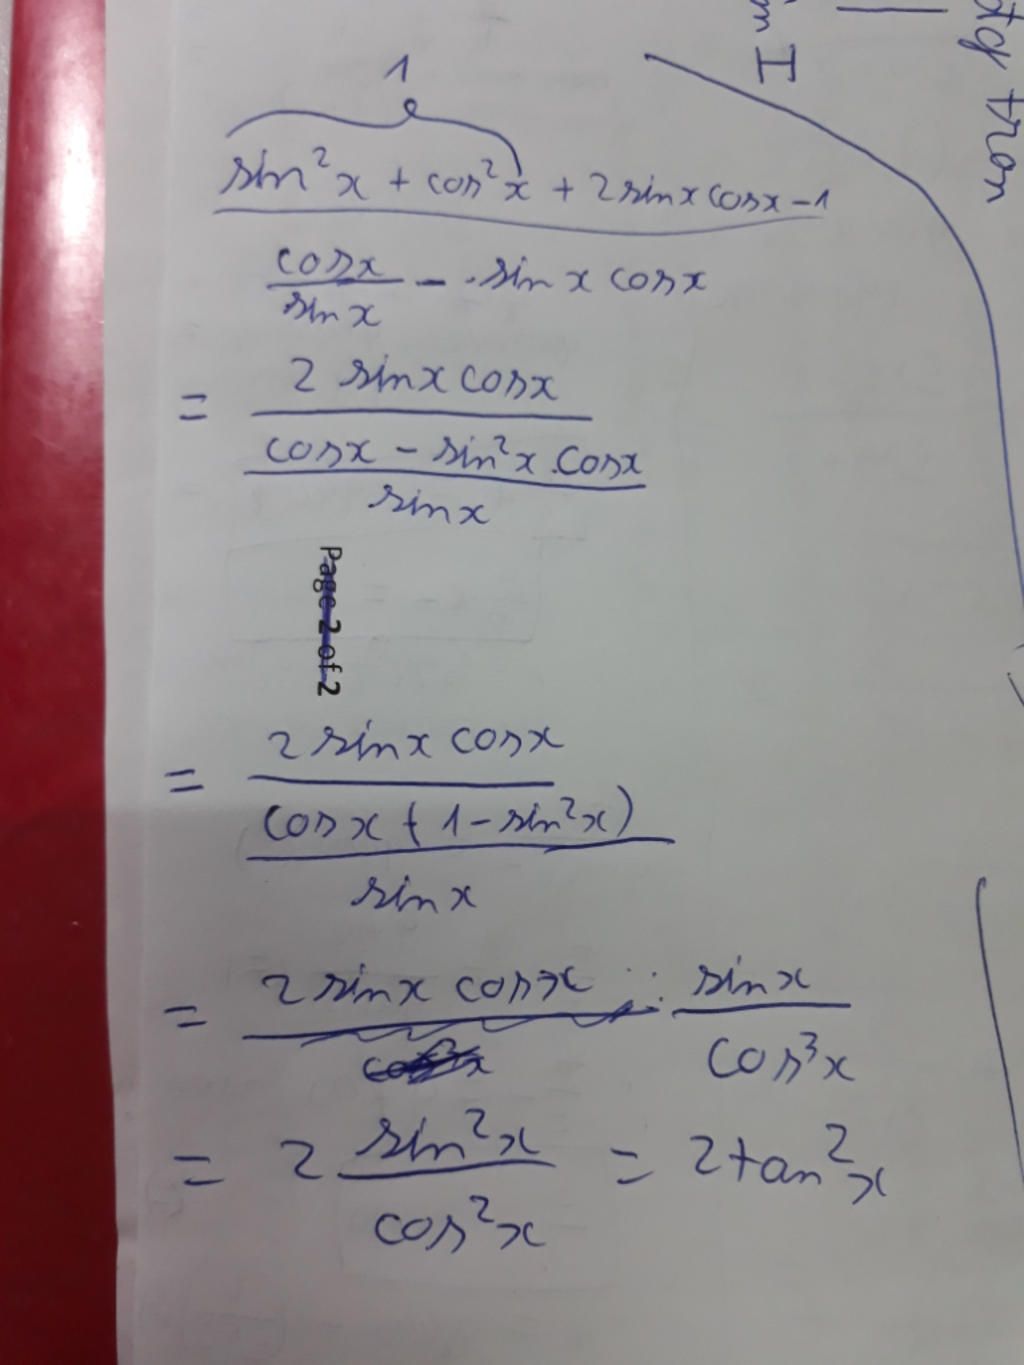 1
sin²x + cos²x + 2sinx cosx - 1
cosx/sinx - sin x cosx
= 2 sinx cosx
cosx - sin²x . cosx
sinx
Page 2 of 2
= 2 sinx cosx
cosx (1 - sin²x)
sinx
= 2 sinx cosx : sinx/cos³x
= 2 sin²x/cos²x = 2tan²x
tran
I